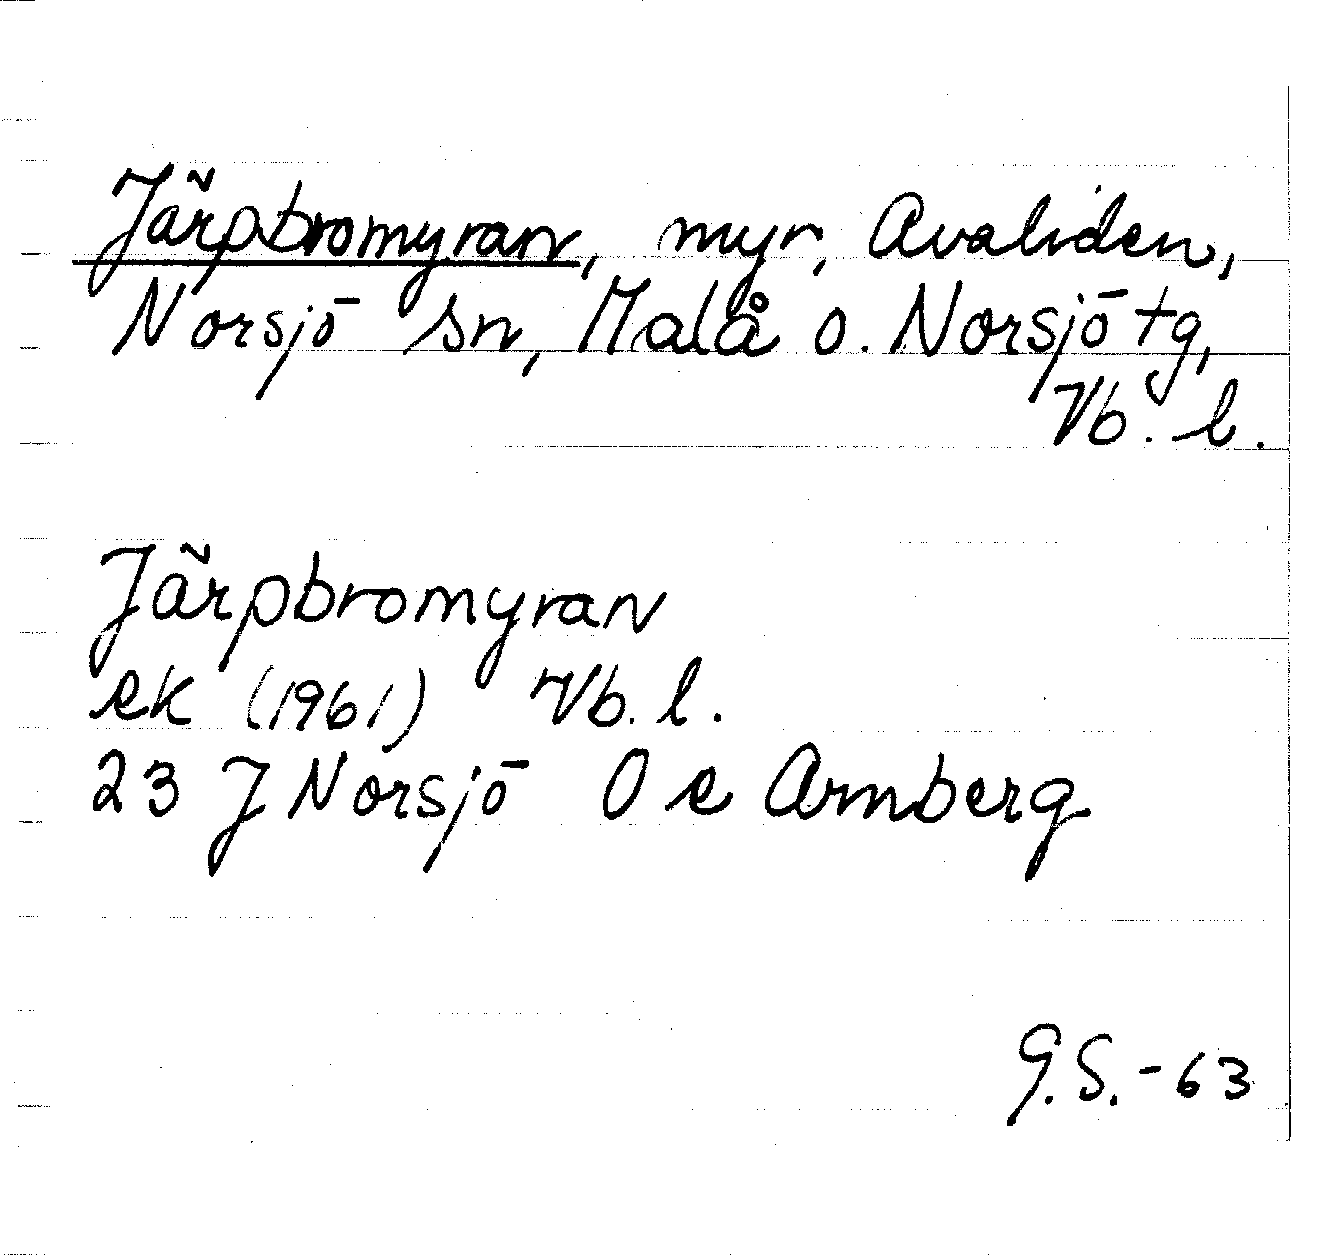 Järpbromyran, myr, Avaliden,
Norsjö sn, Malå o. Norsjö tg,
Vb. l.
Järpbromyran
ek (1961) Vb. l.
23 J Norsjö O e Armberg
G.S.-63